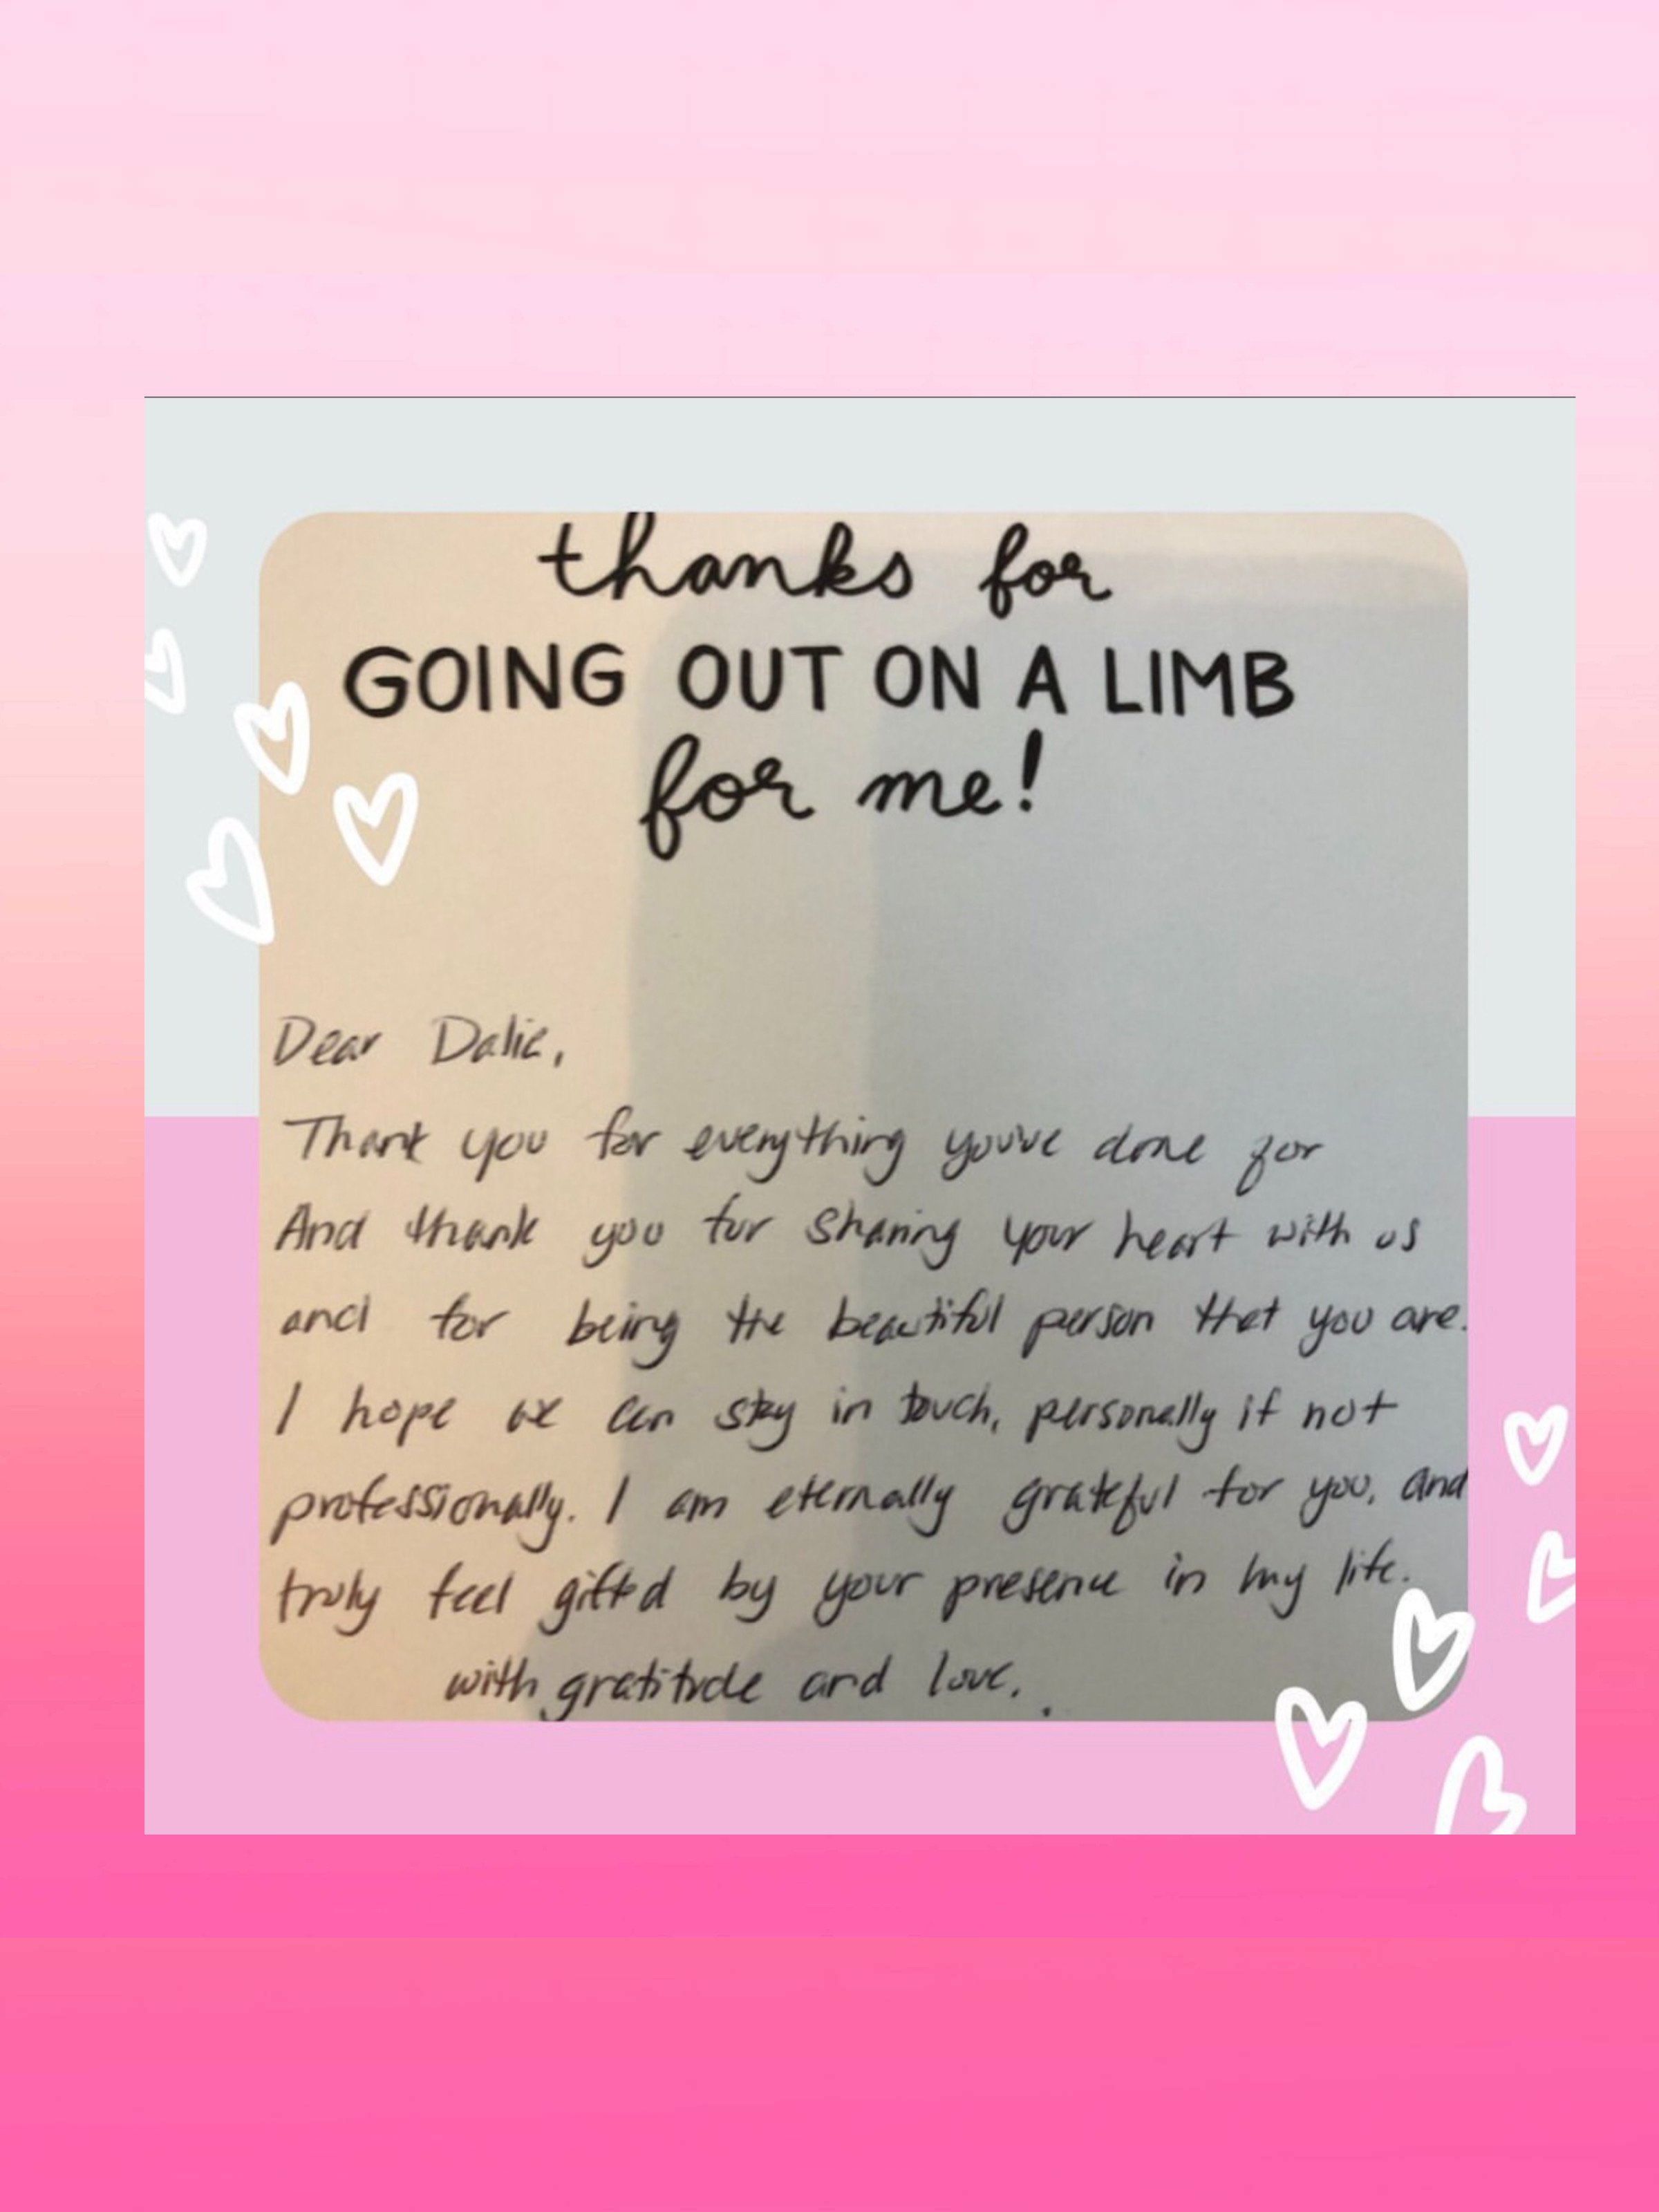 thanks for
GOING OUT ON A LIMB
for me!
Dear Dalie,
Thank you for everything you've done for
And thank you for sharing your heart with us
and for being the beautiful person that you are.
I hope we can stay in touch, personally if not
professionally. I am eternally grateful for you, and
truly feel gifted by your presence in my life.
with gratitude and love,